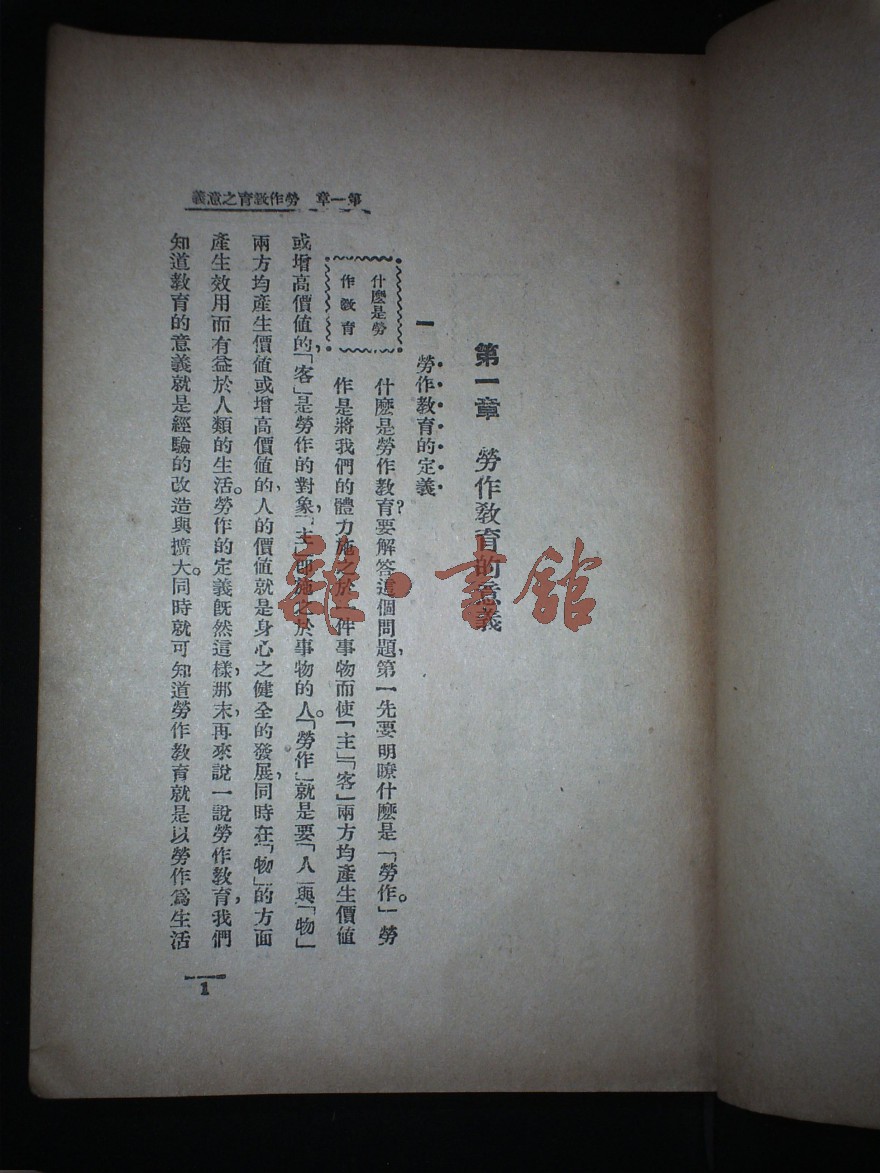 第一章 勞作敎育之意義
第一章 勞作敎育的意義
一 勞作敎育的定義
什麽是勞
作敎育
什麽是勞作敎育?要解答這個問題,第一先要明瞭什麽是「勞作」。勞
作是將我們的體力施之於一件事物而使「主」「客」兩方均產生價値
或增高價値的,「客」是勞作的對象,「主」卽施之於事物的人。「勞作」就是要「人」與「物」
兩方均產生價値或增高價値的,人的價値就是身心之健全的發展,同時在「物」的方面
產生效用而有益於人類的生活。勞作的定義旣然這樣,那末,再來說一說勞作敎育,我們
知道敎育的意義就是經驗的改造與擴大。同時就可知道勞作敎育就是以勞作爲生活
1
雜·書館